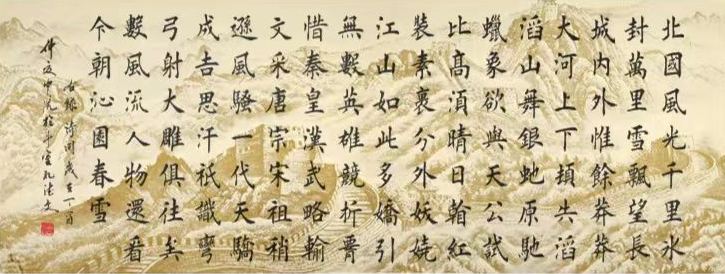 北國風光千里氷
封萬里雪飄望長
城内外惟餘莽莽
大河上下頓失滔
滔山舞銀蛇原馳
蠟象欲與天公試
比髙須晴日看紅
裝素裹分外妖嬈
江山如此多嬌引
無數英雄競折腰
惜秦皇漢武略輸
文采唐宗宋祖稍
遜風騷一代天驕
成吉思汗祇識彎
弓射大雕俱往矣
數風流人物還看
今朝沁園春雪
歲在丁酉
仲夏中浣於